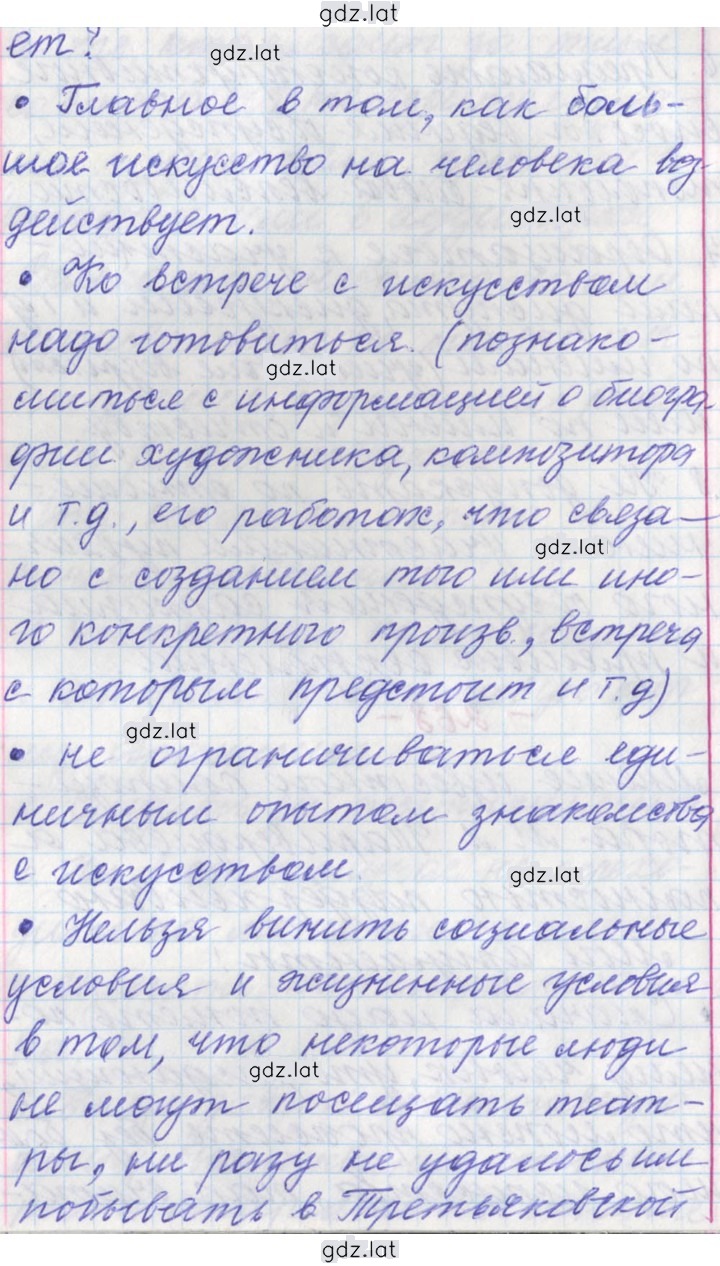 gdz.lat
ет?
gdz.lat
• Главное в том, как боль-
шое искусство на человека воз-
действует.
gdz.lat
• Ко встрече с искусством
надо готовиться. (познако-
gdz.lat
миться с информацией о биогра
фии художника, композитора
и т.д., его работах, что связа-
gdz.lat
но с созданием того или ино-
го конкретного произв., встреча
с которым предстоит и т.д)
gdz.lat
• не ограничиваться еди-
ничным опытом знакомства
с искусством.
gdz.lat
• Нельзя винить социальные
условия и жизненные условия
в том, что некоторые люди
gdz.lat
не могут посещать теат-
ры, ни разу не удалось им
побывать в Третьяковской
gdz.lat